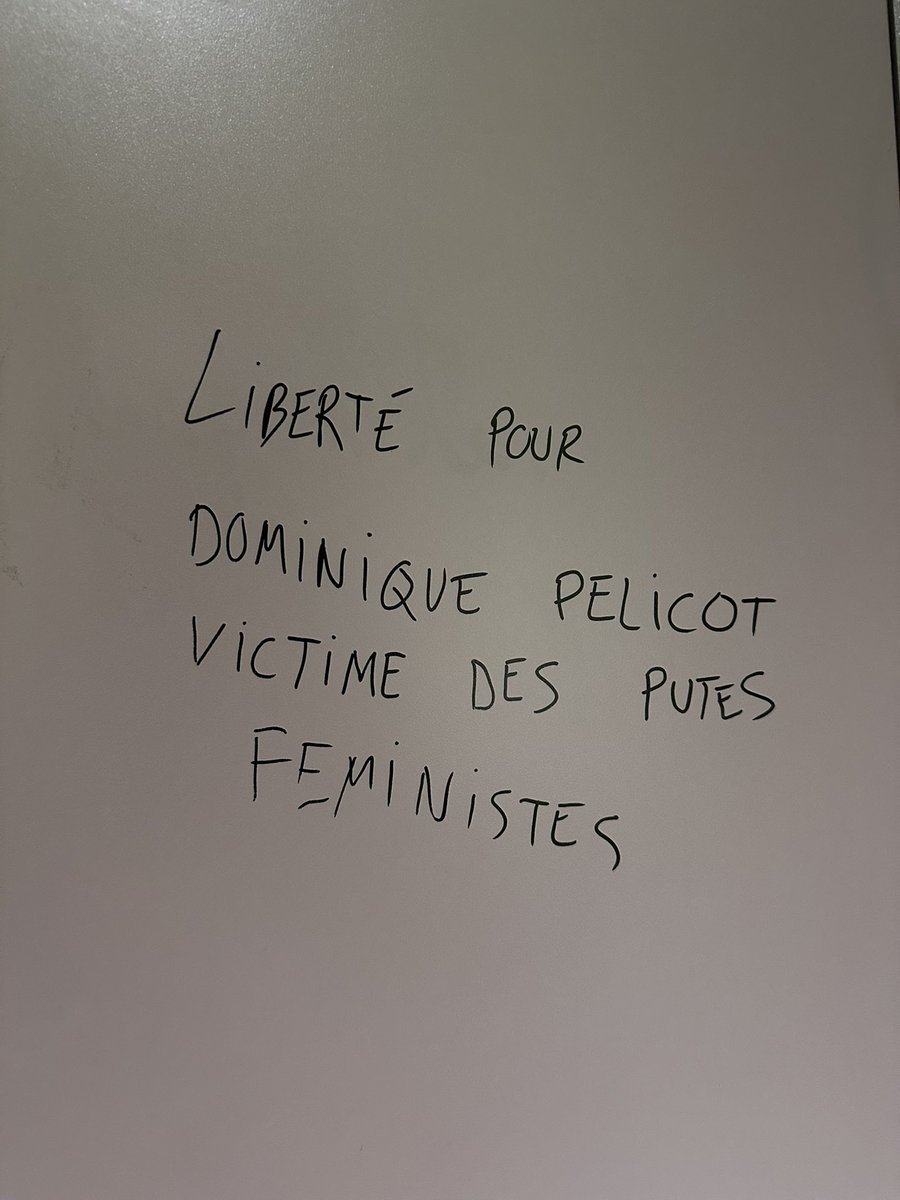 LiBERTÉ POUR
DOMiNiQUE PELiCOT
ViCTiME DES PUTES
FEMiNiSTES